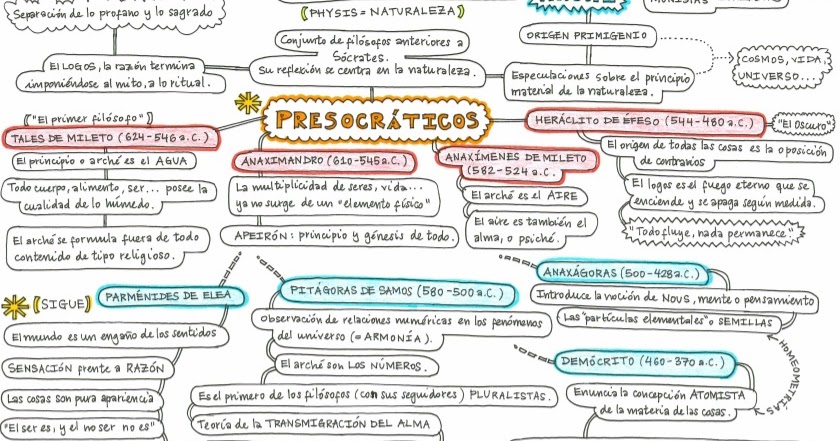 Separación de lo profano y lo sagrado
(PHYSIS = NATURALEZA)
MONISTAS
Conjunto de filósofos anteriores a
Sócrates.
Su reflexión se centra en la naturaleza.
ORIGEN PRIMIGENIO
COSMOS, VIDA,
UNIVERSO...
El LOGOS, la razón termina
imponiéndose al mito, a lo ritual.
Especulaciones sobre el principio
material de la naturaleza.
PRESOCRÁTICOS
("El primer filósofo")
TALES DE MILETO (624-546 a.C.)
El principio o arché es el AGUA
Todo cuerpo, alimento, ser... posee la
cualidad de lo húmedo.
El arché se formula fuera de todo
contenido de tipo religioso.
ANAXIMANDRO (610-545 a.C.)
La multiplicidad de seres, vida...
ya no surge de un "elemento físico"
APEIRÓN: principio y génesis de todo.
ANAXÍMENES DE MILETO
(582-524 a.C.
El arché es el AIRE
El aire es también el
alma, o psiché.
HERÁCLITO DE ÉFESO (544-460 a.C.)
"El Oscuro"
El origen de todas las cosas es la oposición
de contrarios
El logos es el fuego eterno que se
enciende y se apaga según medida.
"Todo fluye, nada permanece"
(SIGUE)
PARMÉNIDES DE ELEA
El mundo es un engaño de los sentidos
SENSACIÓN frente a RAZÓN
Las cosas son pura apariencia
"El ser es, y el no ser no es"
PITÁGORAS DE SAMOS (580-500 a.C.)
Observación de relaciones numéricas en los fenómenos
del universo (= ARMONÍA).
El arché son LOS NÚMEROS.
Es el primero de los filósofos (con sus seguidores) PLURALISTAS.
Teoría de la TRANSMIGRACIÓN DEL ALMA
ANAXÁGORAS (500-428 a.C.)
Introduce la noción de NOUS, mente o pensamiento
Las "partículas elementales" o SEMILLAS
HOMEOMETRÍAS
DEMÓCRITO (460-370 a.C.)
Enuncia la concepción ATOMISTA
de la materia de las cosas.